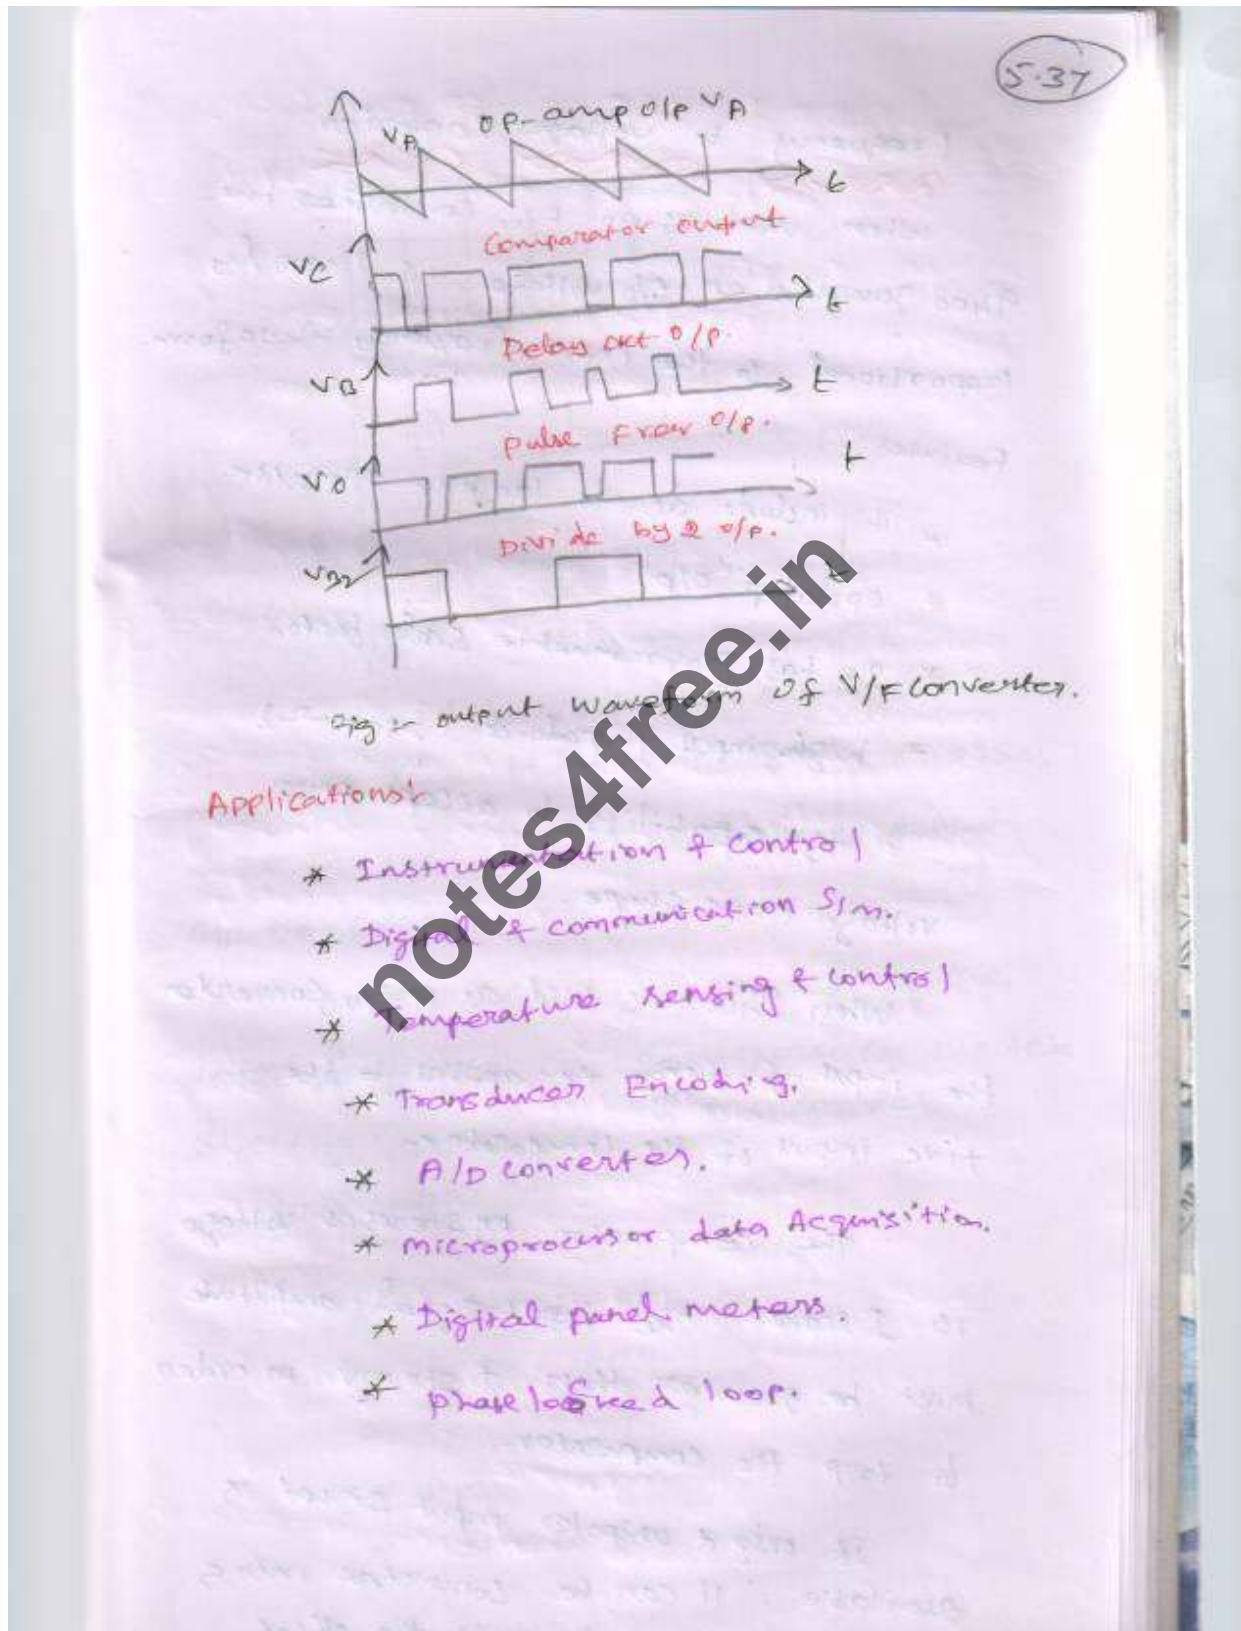 5.37
op-amp o/p VA
VA
t
Comparator output
VC
t
Delay ckt o/p.
VB
t
Pulse o/p.
VO
t
Divide by 2 o/p.
t
Fig :- output waveform of V/F Converter.
Applications:
* Instrumentation & control
* Digital & communication S/m.
* Temperature sensing & control
* Transducer Encoding.
* A/D converter.
* microprocessor data Acquisition.
* Digital panel meters.
* phase locked loop.
notes4free.in